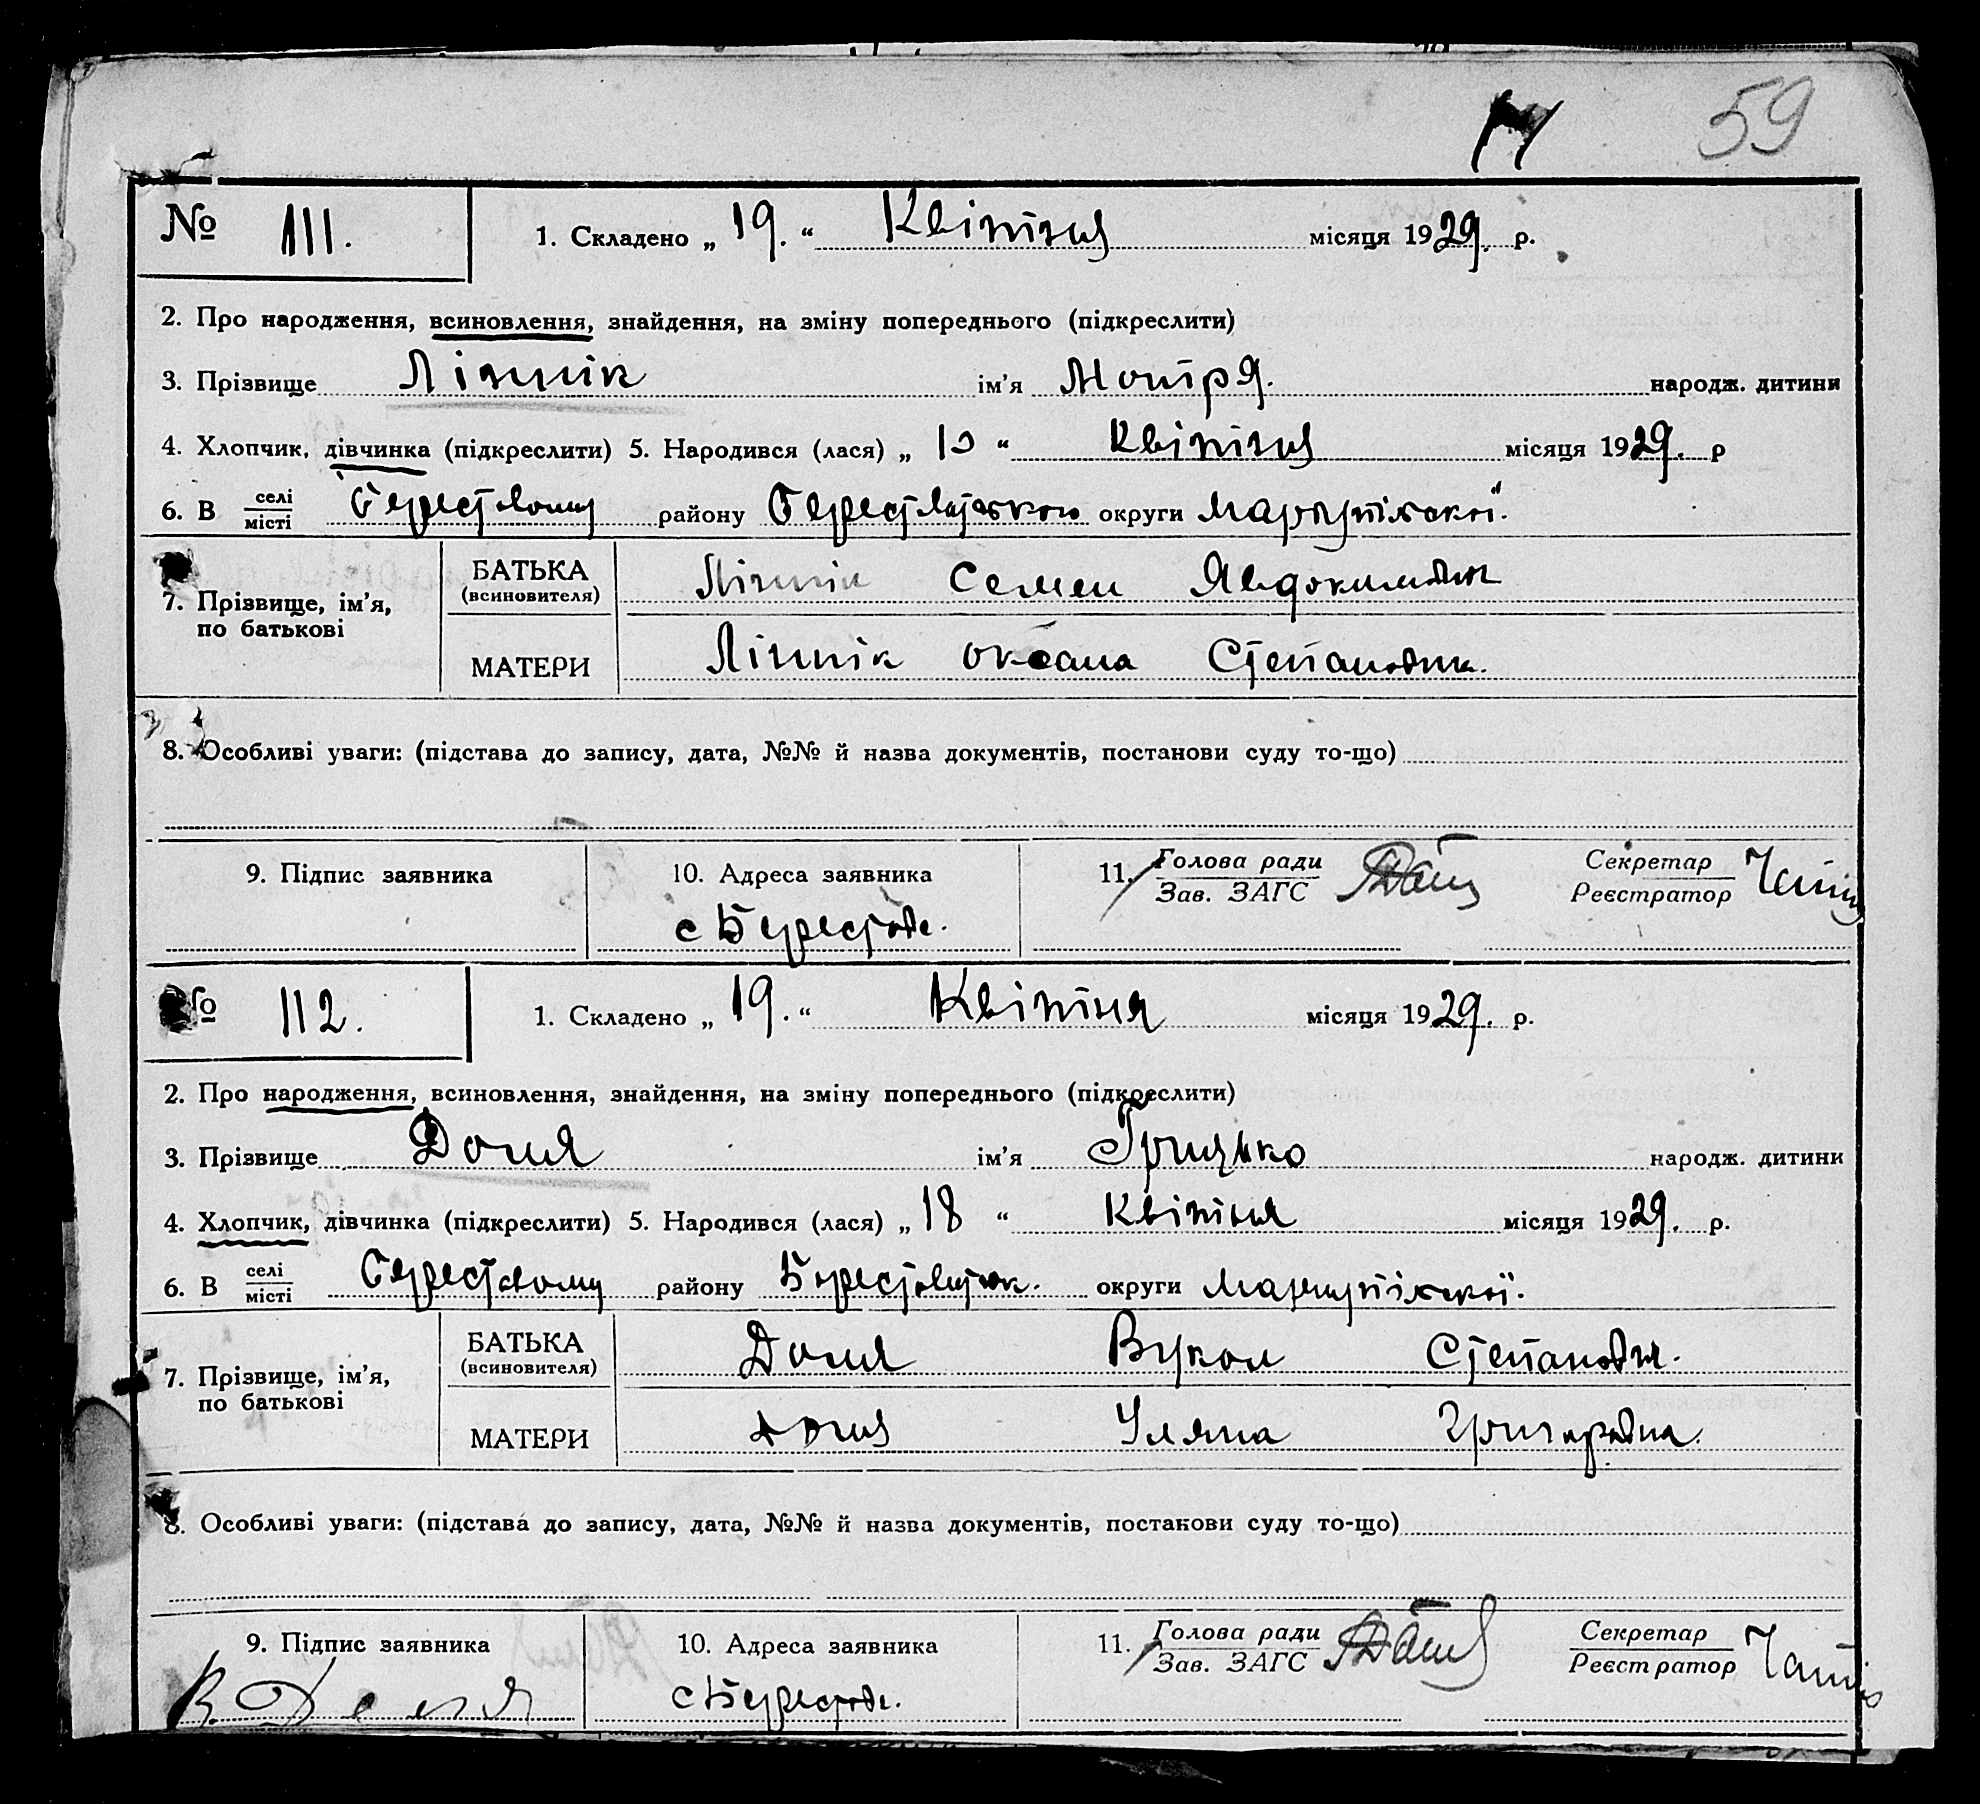 59
№ 111.
1. Складено „ 19. “ Квітня місяця 1929. р.
2. Про народження, всиновлення, знайдення, на зміну попереднього (підкреслити)
3. Прізвище Лінник ім’я Мотря. народж. дитини
4. Хлопчик, дівчинка (підкреслити) 5. Народився (лася) „ 10 “ Квітня місяця 1929. р
6. В селі місті Берестовому району Берестовецького округи Маріупільської.
7. Прізвище, ім’я, по батькові
БАТЬКА (всиновителя) Лінник Семен Явдокимович
МАТЕРИ Лінник Оксана Степановна.
8. Особливі уваги: (підстава до запису, дата, №№ й назва документів, постанови суду то-що)
9. Підпис заявника 10. Адреса заявника 11. Голова ради Зав. ЗАГС Секретар Реєстратор
с Берестове.
№ 112.
1. Складено „ 19. “ Квітня місяця 1929. р.
2. Про народження, всиновлення, знайдення, на зміну попереднього (підкреслити)
3. Прізвище Доля ім’я Грицько народж. дитини
4. Хлопчик, дівчинка (підкреслити) 5. Народився (лася) „ 18 “ Квітня місяця 1929. р.
6. В селі місті Берестовому району Берестовецьк. округи Маріупільської.
7. Прізвище, ім’я, по батькові
БАТЬКА (всиновителя) Доля Вукол Степанович.
МАТЕРИ Доля Уляна Григоровна.
8. Особливі уваги: (підстава до запису, дата, №№ й назва документів, постанови суду то-що)
9. Підпис заявника 10. Адреса заявника 11. Голова ради Зав. ЗАГС Секретар Реєстратор
В. Доля с Берестове.